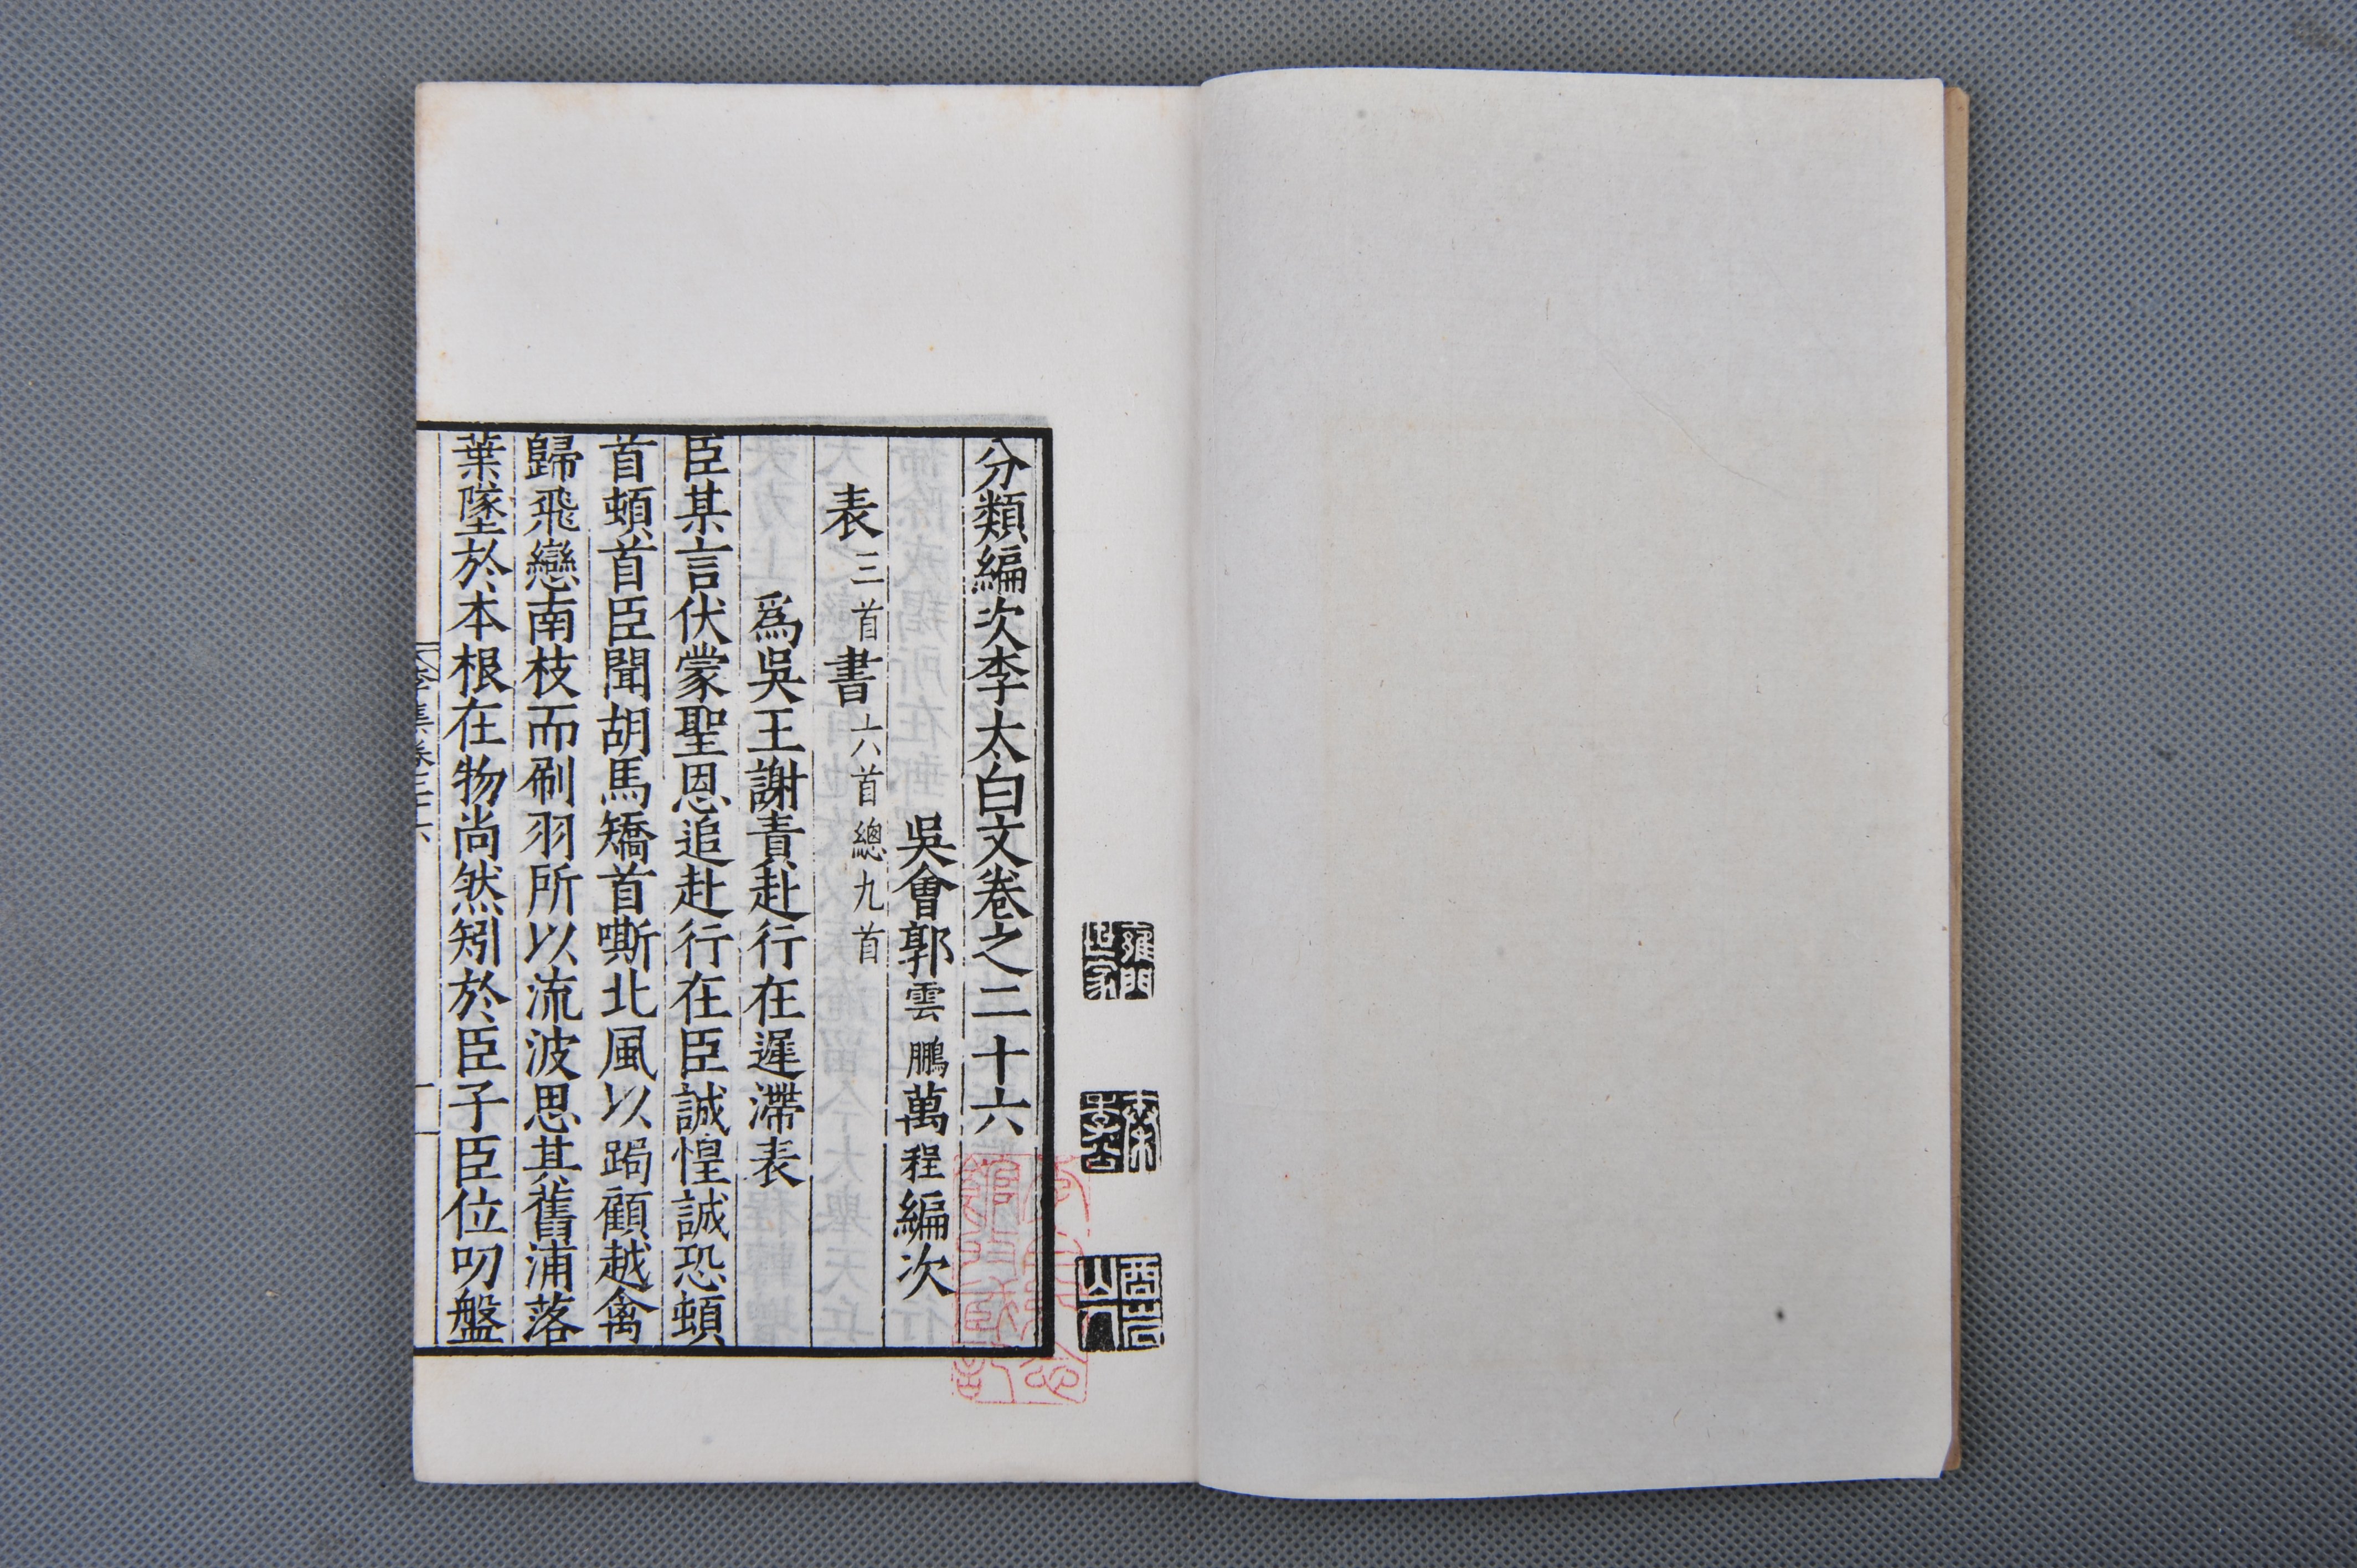 分類編次李太白文卷之二十六
吳會郭雲鵬萬程編次
表三首書六首總九首
爲吳王謝責赴行在遲滯表
臣某言伏蒙聖恩追赴行在臣誠惶誠恐頓
首頓首臣聞胡馬矯首嘶北風以跼顧越禽
歸飛戀南枝而刷羽所以流波思其舊浦落
葉墜於本根在物尚然矧於臣子臣位叨盤
雍門世家
酉巖山人